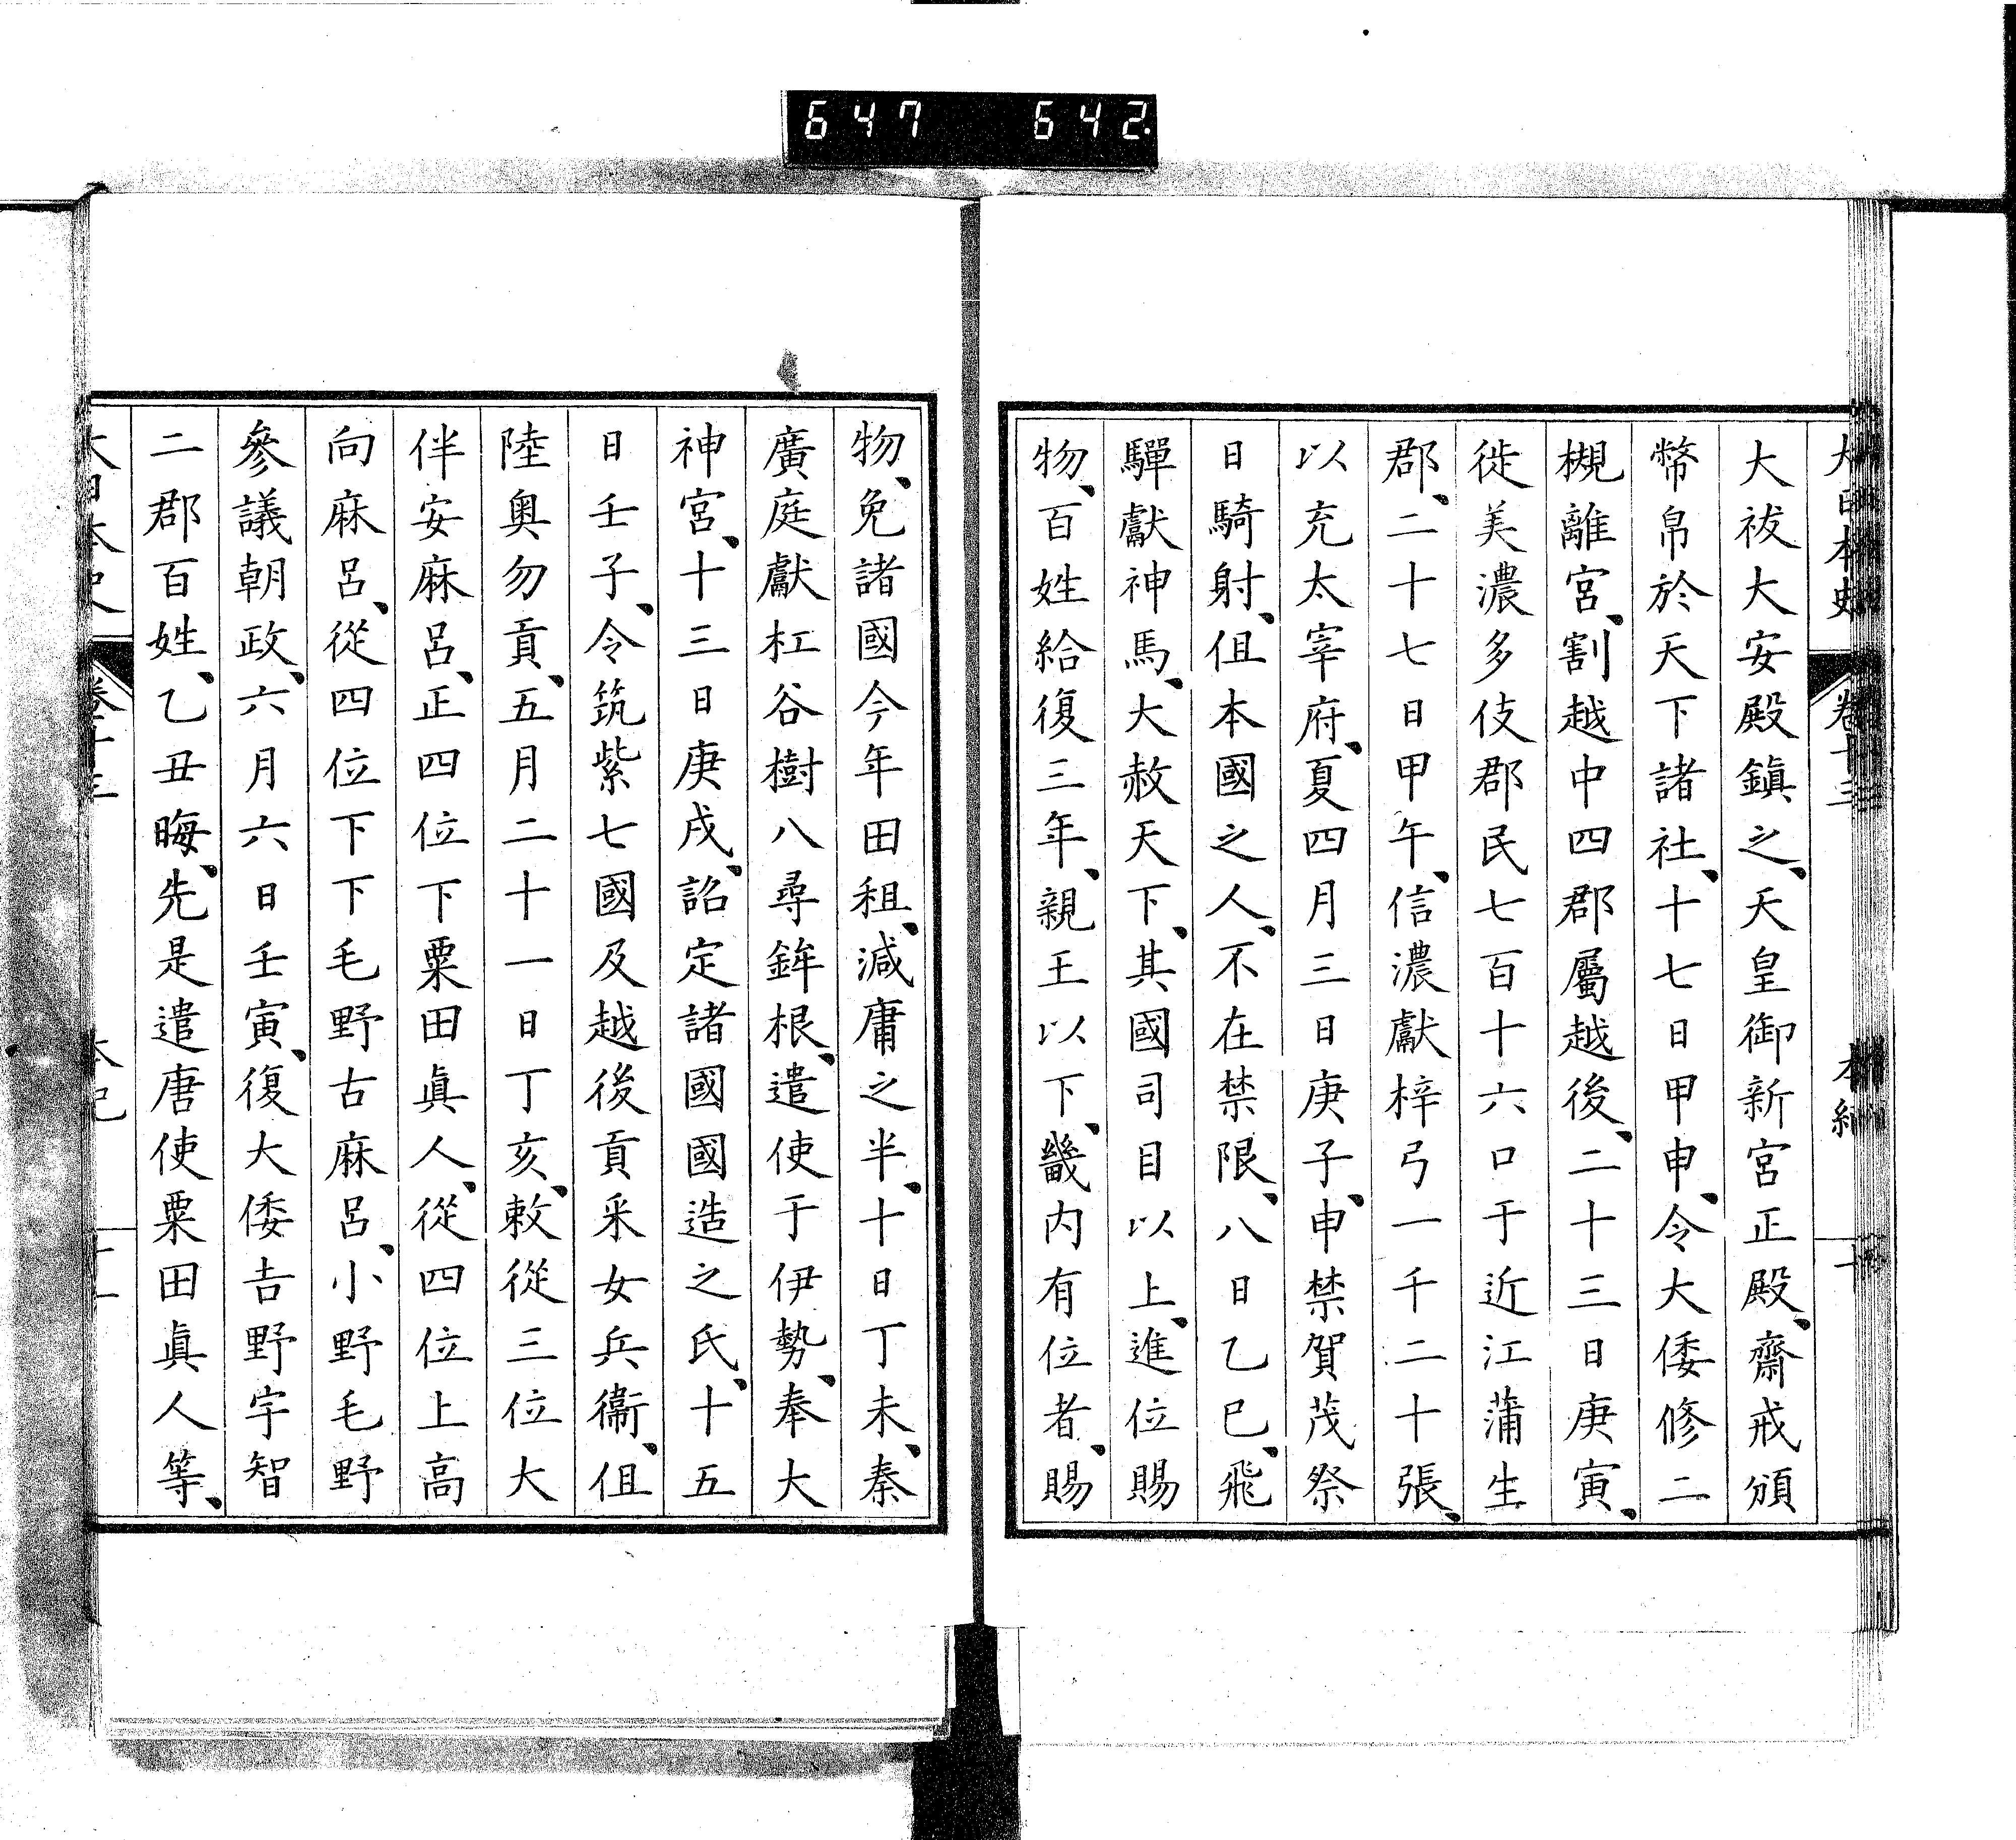 647 642.
大日本史 卷十三 本紀
大祓大安殿鎭之、天皇御新宮正殿、齋戒頒
幣帛於天下諸社、十七日甲申、令大倭修二
槻離宮、割越中四郡屬越後、二十三日庚寅、
徙美濃多伎郡民七百十六口于近江蒲生
郡、二十七日甲午、信濃獻梓弓一千二十張、
以充太宰府、夏四月三日庚子、申禁賀茂祭
日騎射、伹本國之人、不在禁限、八日乙巳、飛
驒獻神馬、大赦天下、其國司目以上、進位賜
物、百姓給復三年、親王以下、畿内有位者、賜
物、免諸國今年田租、減庸之半、十日丁未、秦
廣庭獻杠谷樹八尋鉾根、遣使于伊勢、奉大
神宮、十三日庚戌、詔定諸國國造之氏、十五
日壬子、令筑紫七國及越後貢釆女兵衞、伹
陸奥勿貢、五月二十一日丁亥、敕從三位大
伴安麻呂、正四位下粟田眞人、從四位上高
向麻呂、從四位下下毛野古麻呂、小野毛野
參議朝政、六月六日壬寅、復大倭吉野宇智
二郡百姓、乙丑晦、先是遣唐使粟田眞人等、
大日本史 卷十三 本紀